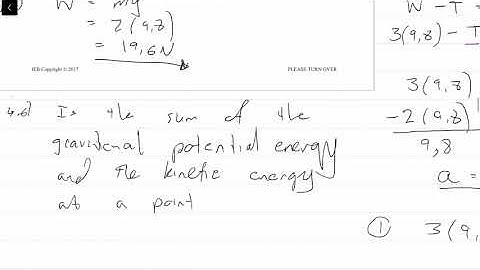 W = mg
= 2(9,8)
= 19,6N
IEB Copyright © 2017
PLEASE TURN OVER
4.6) Is the sum of the
gravitional potential energy
and the kinetic energy
at a point
W - T =
3(9,8) - T
3(9,8)
-2(9,8)
9,8
a =
① 3(9,